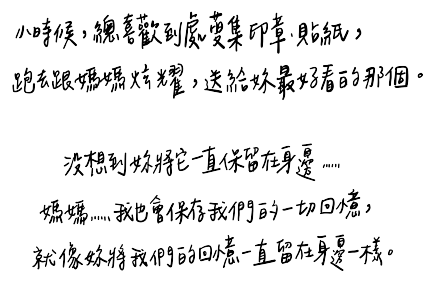 小時候，總喜歡到處蒐集印章、貼紙，
跑去跟媽媽炫耀，送給妳最好看的那個。
沒想到妳將它一直保留在身邊……
媽媽……我也會保存我們的一切回憶，
就像妳將我們的回憶一直留在身邊一樣。